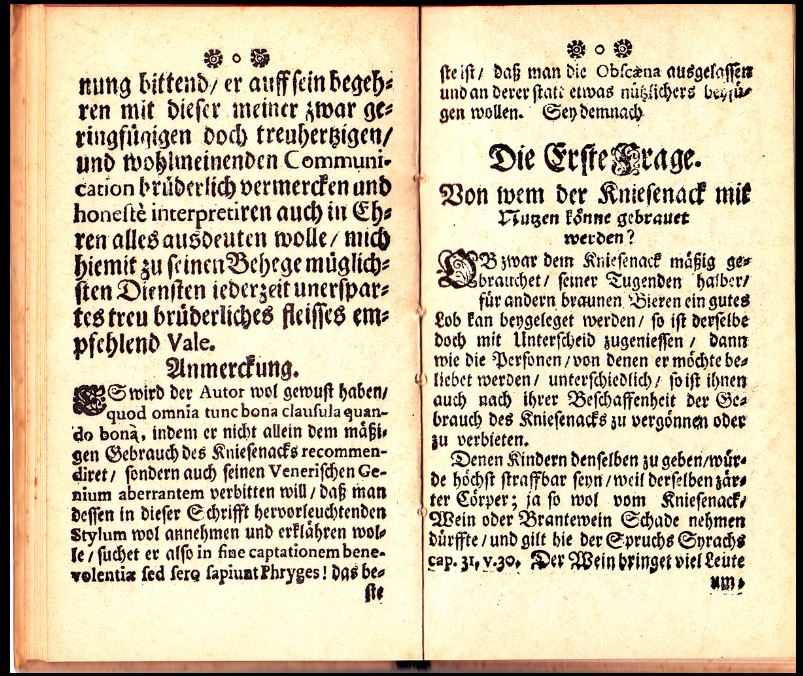 nung bittend/ er auff sein begeh⸗
ren mit dieser meiner zwar ge⸗
ringfügigen doch treuhertzigen/
und wohlmeinenden Communi-
cation brüderlich vermercken und
honestè interpretiren auch in Eh⸗
ren alles ausdeuten wolle/ mich
hiemit zu seinen Behege müglich⸗
sten Diensten iederzeit unerspar⸗
tes treu brüderliches fleisses em⸗
pfehlend Vale.
Anmerckung.
ES wird der Autor wol gewust haben/
quod omnia tunc bona clausula quan-
do bona, indem er nicht allein dem mäßi⸗
gen Gebrauch des Kniesenacks recommen-
diret/ sondern auch seinen Venerischen Ge-
nium aberrantem verbitten will/ daß man
dessen in dieser Schrifft hervorleuchtenden
Stylum wol annehmen und erklähren wol⸗
le/ suchet er also in fine captationem bene-
volentiæ sed sero sapiunt Phryges! das be⸗
ste
ste ist/ daß man die Obscæna ausgelassen
und an derer statt etwas nützlichers beyfü⸗
gen wollen. Sey demnach
Die Erste Frage.
Von wem der Kniesenack mit
Nutzen könne gebrauet
werden?
OB zwar dem Kniesenack mäßig ge⸗
brauchet/ seiner Tugenden halber/
für andern braunen Bieren ein gutes
Lob kan beygeleget werden/ so ist derselbe
doch mit Unterscheid zugeniessen/ dann
wie die Personen/ von denen er möchte be⸗
liebet werden/ unterschiedlich/ so ist ihnen
auch nach ihrer Beschaffenheit der Ge⸗
brauch des Kniesenacks zu vergönnen oder
zu verbieten.
Denen Kindern denselben zu geben/ wür⸗
de höchst straffbar seyn/ weil derselben zär⸗
ter Cörper; ja so wol vom Kniesenack/
Wein oder Brantewein Schade nehmen
dürffte/ und gilt hie der Spruchs Syrachs
cap. 31, v. 30. Der Wein bringet viel Leute
um,